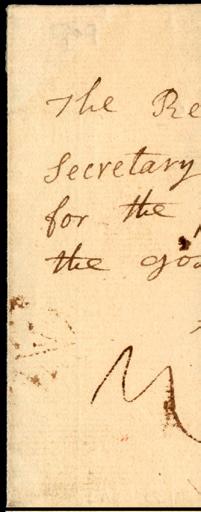 The Re
Secretary
for the
the goo